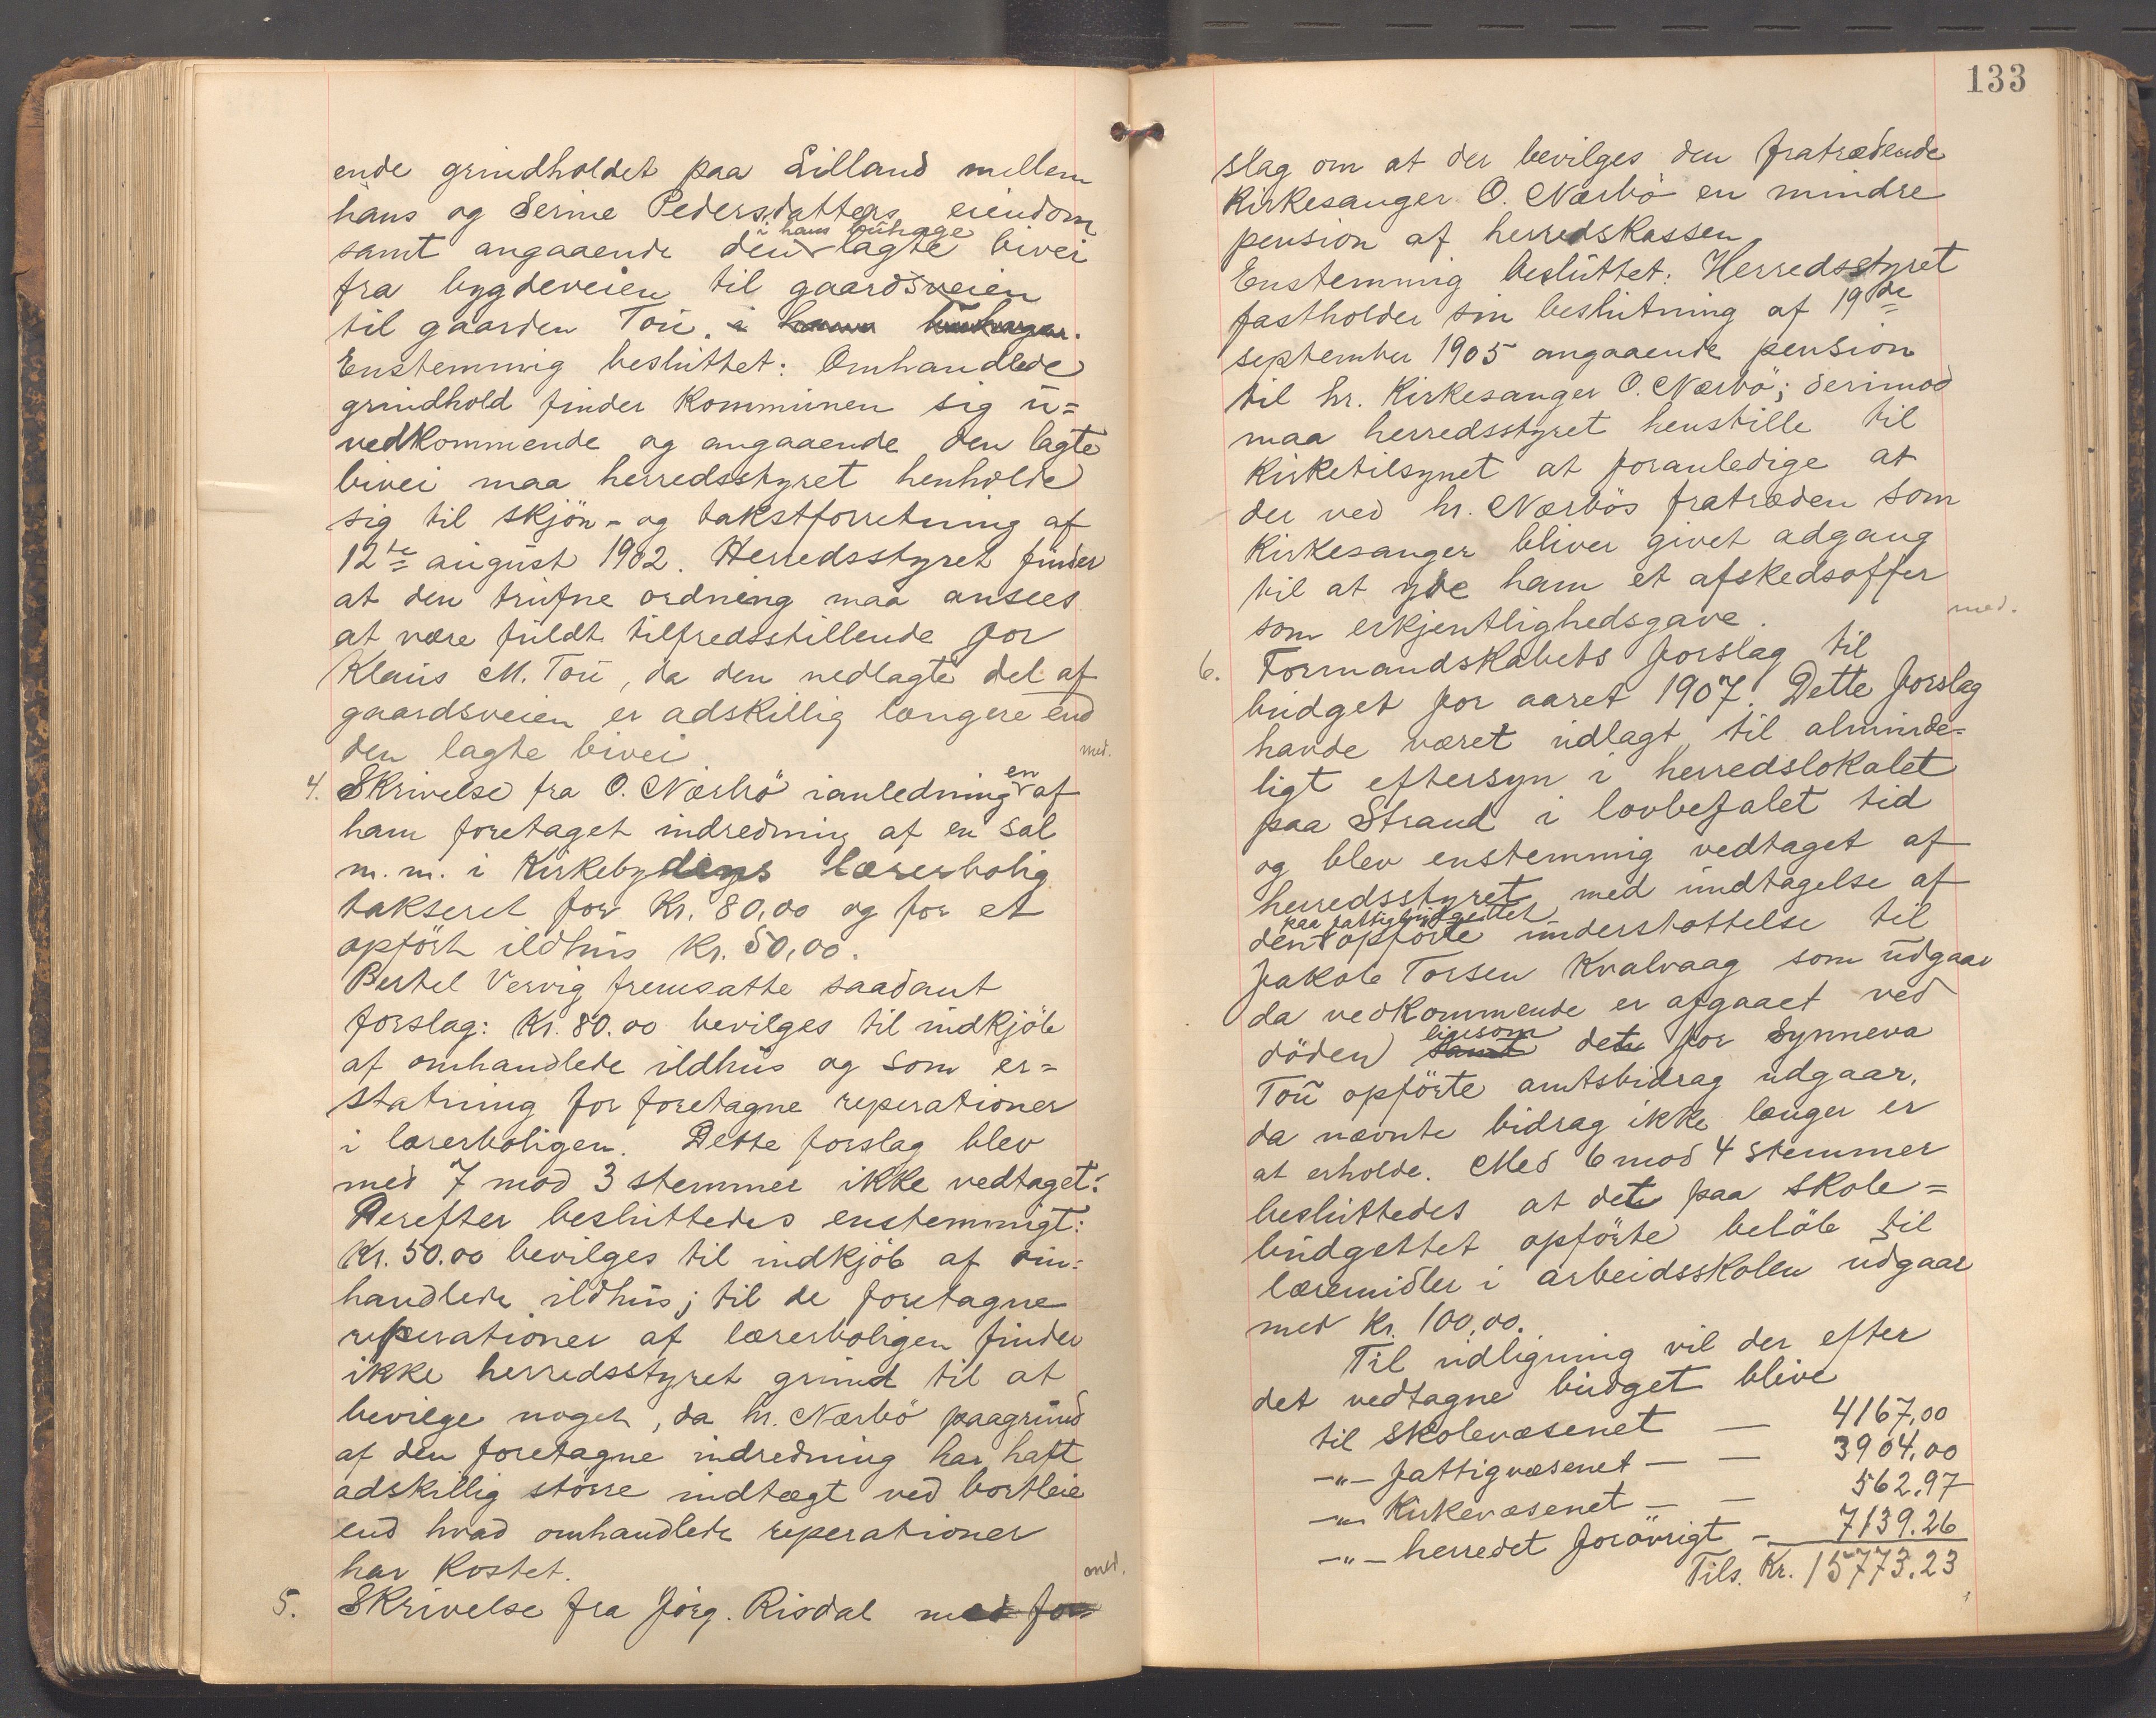 ende grindholdet paa Lilland mellem
hans og Serine Pedersdatters eiendom
i hans búhage
samt angaaende den lagte bivei
fra bygdeveien til gaardsveien
til gaarden Toú. i hans búhage.
Enstemmig beslúttet: Omhandlede
grindhold finder Kommúnen sig ú=
vedkommende og angaaende den lagte
bivei maa herredsstyret henholde
sig til skjön- og takstforretning af
12te aúgúst 1902. Herredsstyret finder
at den trúfne ordning maa ansees
at være fúldt tilfredsstillende for
Klaús M. Toú, da den nedlagte del af
gaardsveien er adskillig længere end
den lagte bivei
med.
4. Skrivelse fra O. Nærbö ianledning en af
ham foretaget indredning af en sal
m. m. i Kirkebydens lærerbolig
takseret for Kr. 80,00 og for et
opfört ildhús Kr. 50,00.
Bertel Vervig fremsatte saadant
forslag: Kr. 80.00 bevilges til indkjöb
af omhandlede ildhús og som er=
statning for foretagne reperationer
i lærerboligen. Dette forslag blev
med 7 mod 3 stemmer ikke vedtaget.
Derefter beslúttedes enstemmigt:
Kr. 50.00 bevilges til indkjöb af om=
handlede ildhús; til de foretagne
reperationer af lærerboligen finder
ikke herredsstyret grúnd til at
bevilge noget, da hr. Nærbö paagrúnd
af den foretagne indredning har haft
adskillig större indtægt ved bortleie
end hvad omhandlede reperationer
har kostet.
med.
5. Skrivelse fra Jörg. Risdal med for
133
slag om at der bevilges den fratrædende
Kirkesanger O. Nærbö en mindre
pension af herredskassen
Enstemmig beslúttet: Herredsstyret
fastholder sin beslútning af 19de
september 1905 angaaende pension
til hr. Kirkesanger O. Nærbö; derimod
maa herredsstyret henstille til
Kirketilsynet at foranledige at
der ved hr. Nærbös fratræden som
Kirkesanger bliver givet adgang
til at yde ham et afskedsoffer
som erkjentlighedsgave.
med.
6. Formandskabets forslag til
búdget for aaret 1907. Dette forslag
havde været údlagt til alminde=
ligt eftersyn i herredslokalet
paa Strand i lovbefalet tid
og blev enstemmig vedtaget af
herredsstyret med úndtagelse af
paa fattigbúdgettet
den opförte únderstøttelse til
Jakob Torsen Kvalvaag som údgaar
da vedkommende er afgaaet ved
ligesom
döden samt det for Synneva
Toú opförte amtsbidrag údgaar,
da nævnte bidrag ikke længer er
at erholde. Med 6 mod 4 stemmer
beslúttedes at det paa skole=
búdgettet opförte belöb til
læremidler i arbeidsskolen údgaar
med Kr. 100,00.
Til údligning vil der efter
det vedtagne búdget blive
til skolevæsenet — 4167,00
—"— fattigvæsenet — — 3904,00
—"— Kirkevæsenet — — 562.97
—"— herredet forövrigt — 7139.26
Tils. Kr. 15773.23